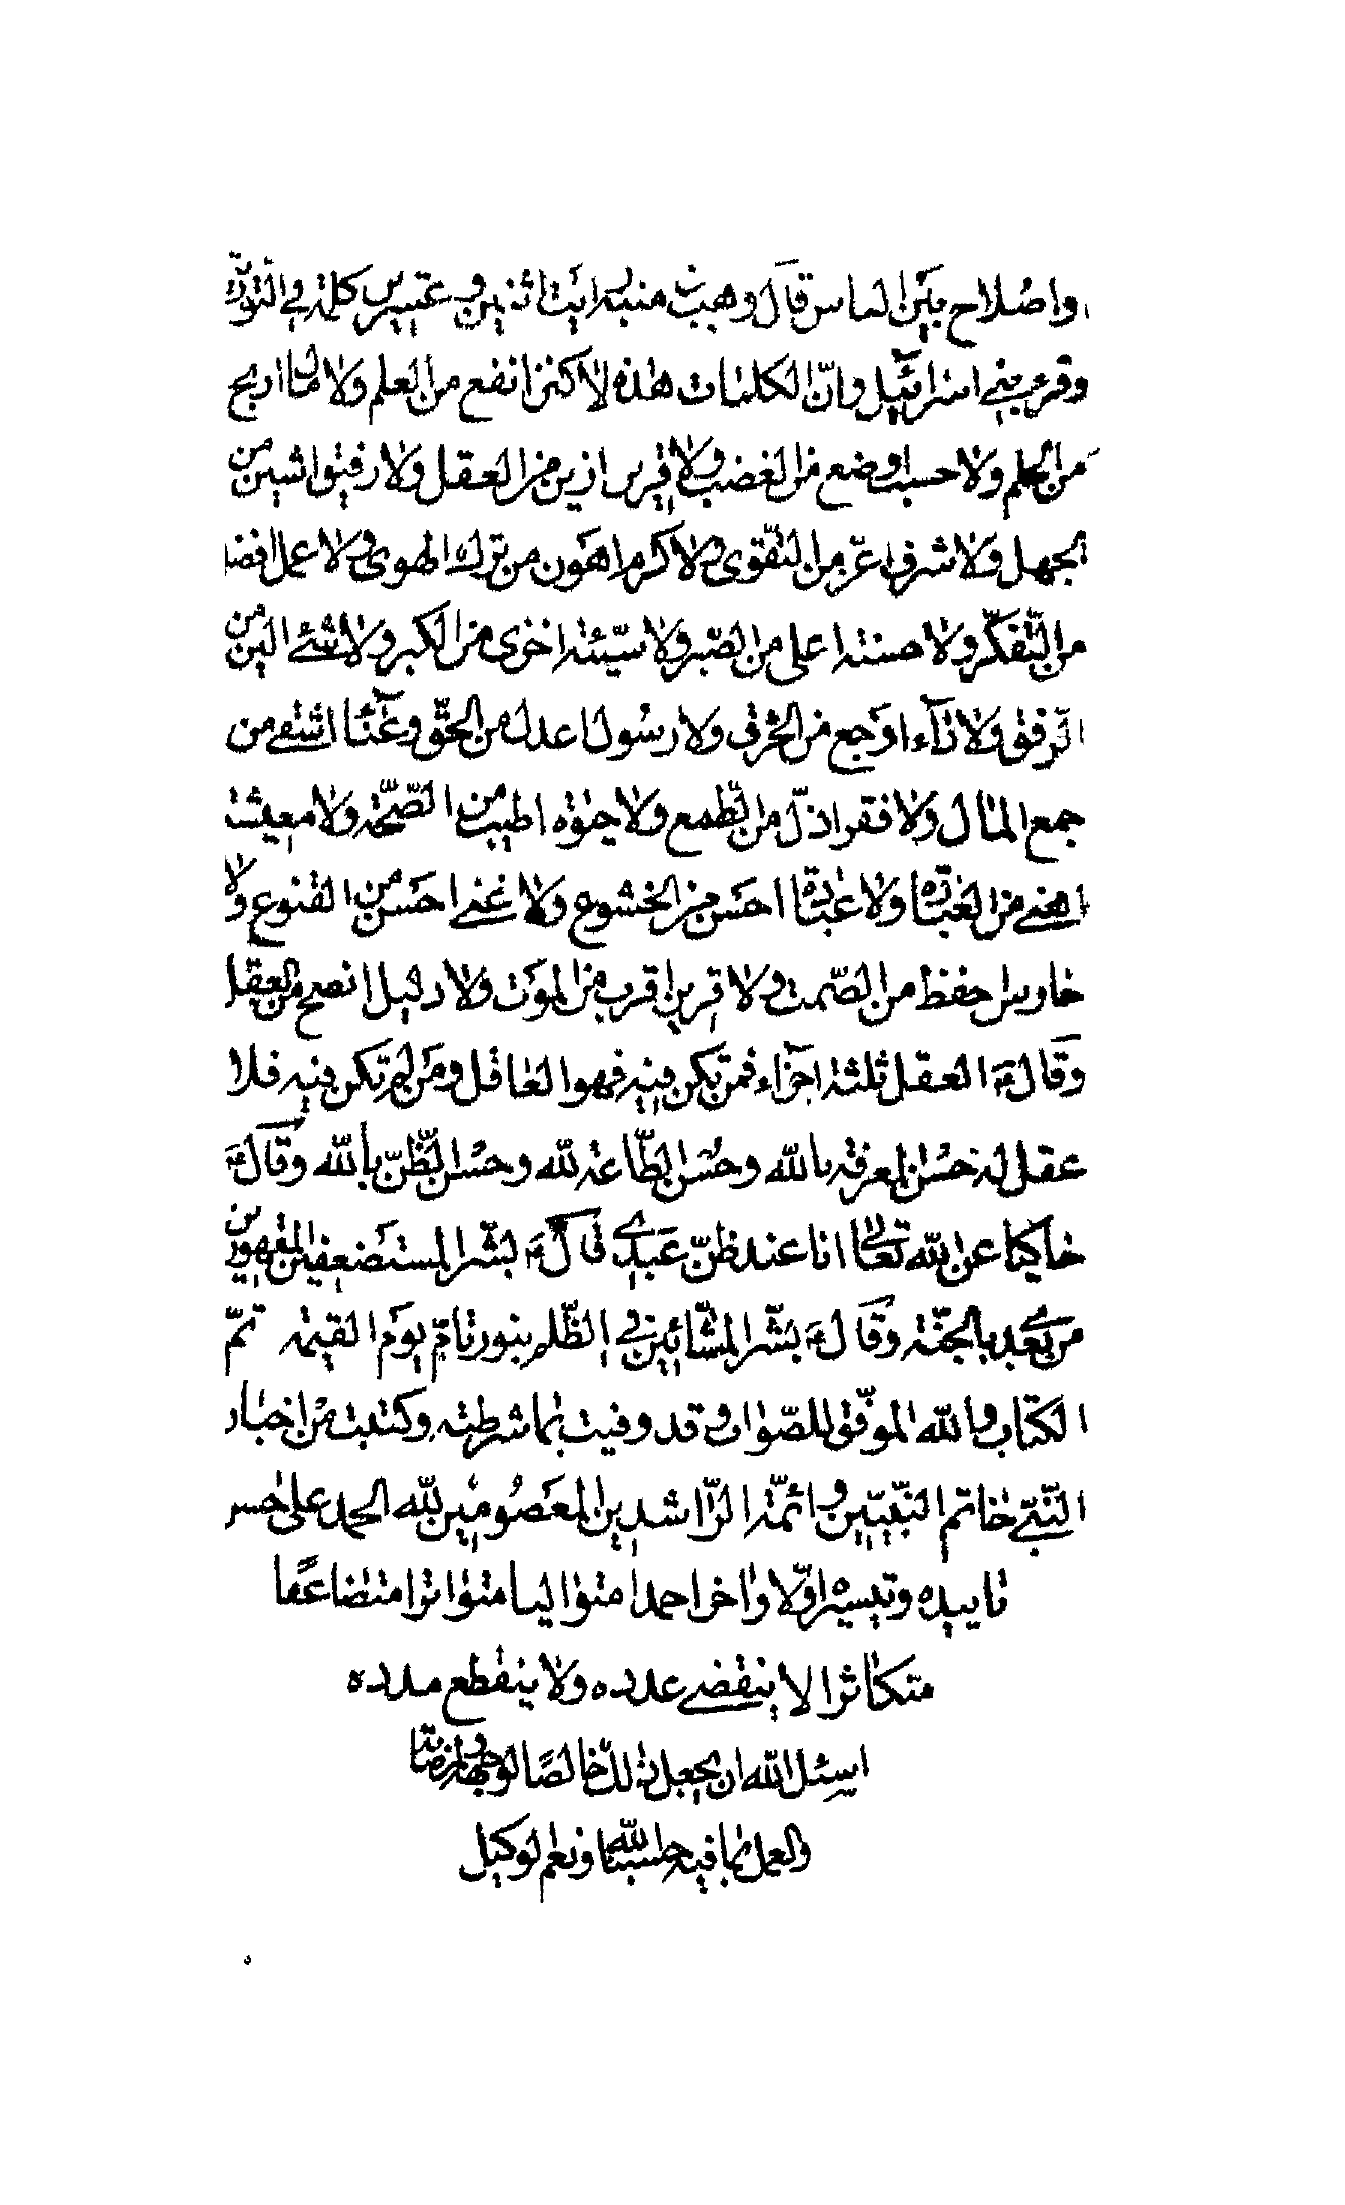 واصلاح بين الناس قال وهب بن منبه رايت اثنين و عشرين كلمة في التورية
وقرء بني اسرائيل وانّ الكلمات هذه لا كنز انفع من العلم ولا مال اربح
من الحلم ولا حسب اوضع من الغضب ولا قرين ازين من العقل ولا رفيق اشين من
الجهل ولا شرف اعزّ من التّقوى ولا كرم اهون من ترك الهوى ولا عمل افضل
من التّفكّر ولا حسنة اعلى من الصّبر ولا سيّئة اخزى من الكبر ولا شئ الين من
الرّفق ولا داء اوجع من الخرق ولا رسول اعدل من الحقّ و اشقى من
جمع المال ولا فقر اذلّ من الطّمع ولا حيوة اطيب من الصّحّة ولا معيشة
اهنئ من العفة ولا عبادة احسن من الخشوع ولا غنى احسن من القنوع ولا
حارس احفظ من الصّمت ولا قريب اقرب من الموت ولا دليل انصح من العقل
وقال ع العقل ثلثة اجزاء فمن تكن فيه فهو العاقل ومن لم تكن فيه فلا
عقل له حسن المعرفة بالله وحسن الطّاعة لله وحسن الظّنّ بالله وقال ع
حاكيا عن الله تعالى انا عند ظنّ عبدي قال ع بشّر المستضعفين المقهورين
من بعدي بالجنّة وقال ع بشّر المشّائين في الظّلم بنور تامّ يوم القيمة تمّ
الكتاب وبالله الموفّق للصّواب وقد وفيت بما شرطته وكتبت من اخبار
النّبيّ خاتم النّبيّين وائمّة الرّاشدين المعصومين لله الحمد على حسن
تاييده وتيسيره اوّلا واخرا حمدا متواليا متواترا متضاعفا
متكاثرا لا ينقضي عدده ولا ينقطع مدده
اسئل الله ان يجعل ذلك خالصًا لوجهه ومرضاته
والعمل بما فيه حسبنا الله ونعم الوكيل